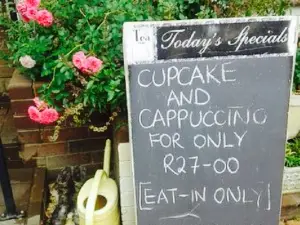 Tea
Today's Specials
CUPCAKE
AND
CAPPUCCINO
FOR ONLY
R27-00
[EAT-IN ONLY]